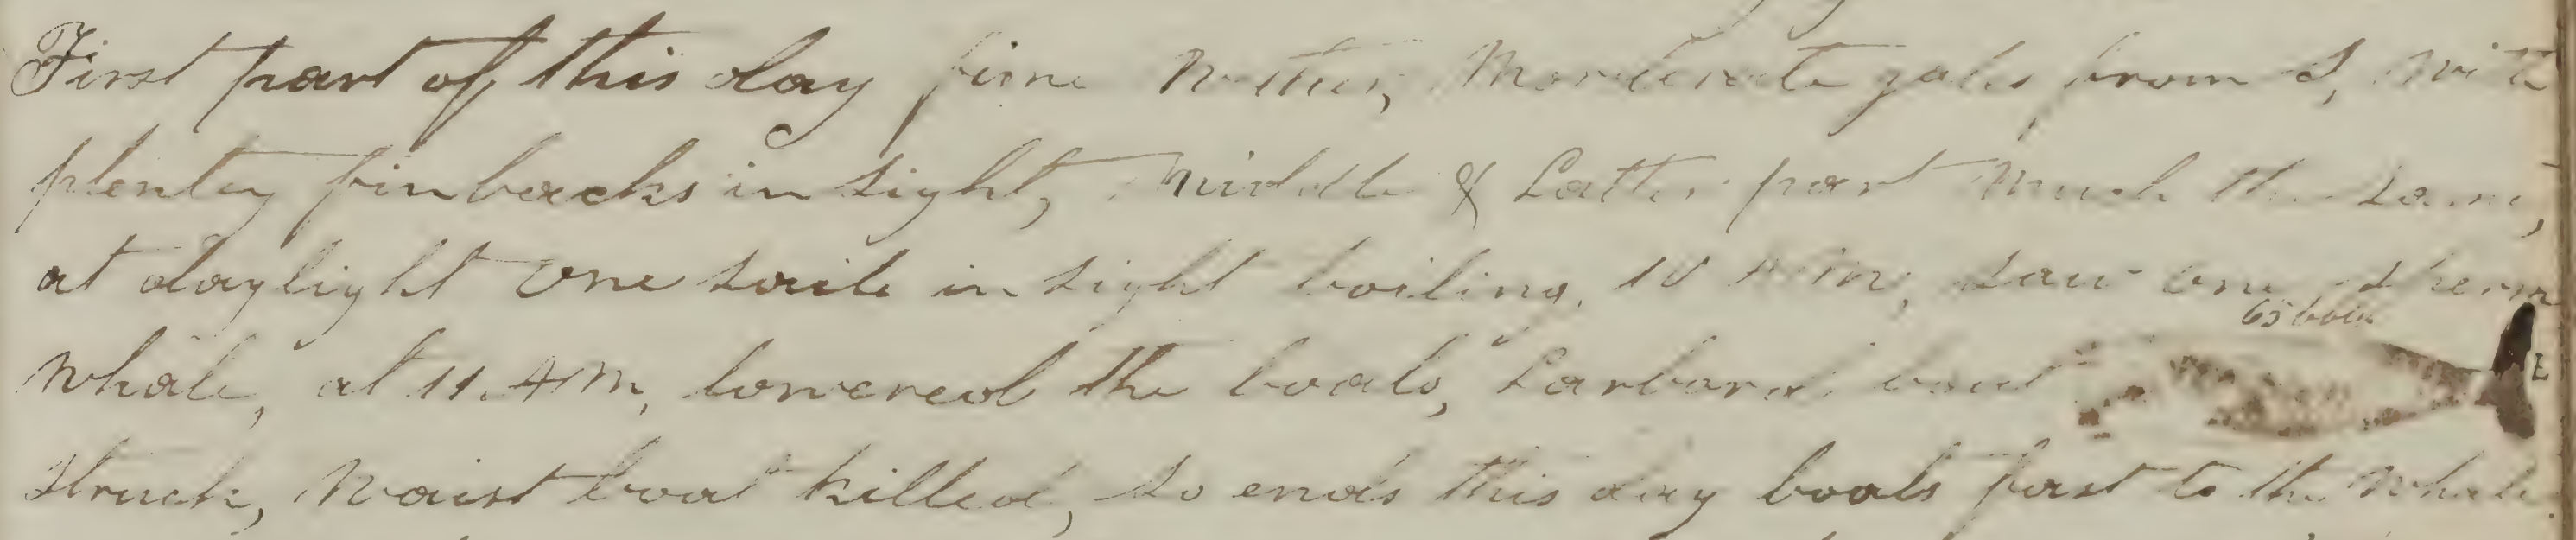 First part of this day fine Wether, Morderate gales from S, With
plenty finbacks in sight, Middle & Latter part Much the Same,
at daylight one saile in sight boiling, 10 AM, saw one Sherm
65 bbls
Whale, at 11 AM, lowered the boats, Larbord boat
Struck, Waist boat killed, So ends this day boats fast to the Whale